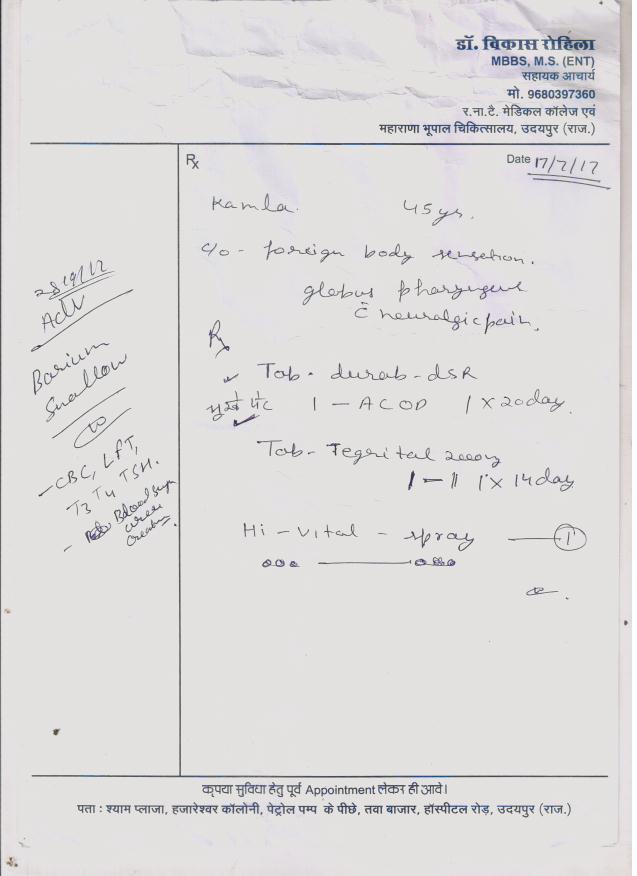 डॉ. विकास रोहिला
MBBS, M.S. (ENT)
सहायक आचार्य
मो. 9680397360
र.ना.टै. मेडिकल कॉलेज एवं
महाराणा भूपाल चिकित्सालय, उदयपुर (राज.)
Rx
Date 17/7/17
Kamla. 45 ys.
c/o - foreign body sensation.
globus pharyngeus
c̄ neuralgic pain.
Rx
Tab. durab-dsR
1 - ACOD 1 x 20 day.
Tab - Tegrital 200mg
1 - 1 1 x 14 day
Hi - Vital - spray 1
Adv
Barium
Swallow
- CBC, LFT,
T3 T4 TSH.
- Blood
कृपया सुविधा हेतु पूर्व Appointment लेकर ही आवें।
पता : श्याम प्लाजा, हजारेश्वर कॉलोनी, पेट्रोल पम्प के पीछे, तवा बाजार, हॉस्पीटल रोड़, उदयपुर (राज.)